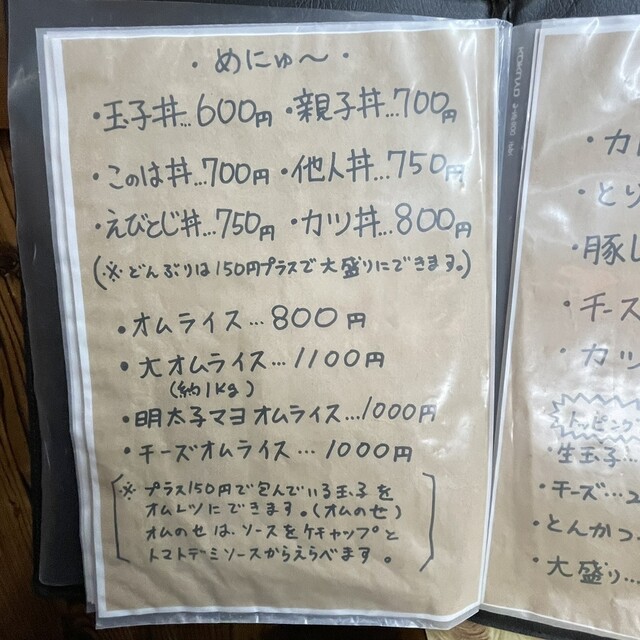 ・めにゅ〜・
・玉子丼…600円 ・親子丼…700円
・このは丼…700円 ・他人丼…750円
・えびとじ丼…750円 ・カツ丼…800円
(※どんぶりは150円プラスで大盛りにできます。)
・オムライス…800円
・大オムライス…1100円
(約1kg)
・明太子マヨオムライス…1000円
・チーズオムライス…1000円
※プラス150円で包んでいる玉子を
オムレツにできます。(オムのせ)
オムのせは、ソースをケチャップと
トマトデミソースからえらべます。
・カ
・とり
・豚し
・チーズ
・カッ
トッピング
・生玉子…
・チーズ…
・とんかつ…
・大盛り…